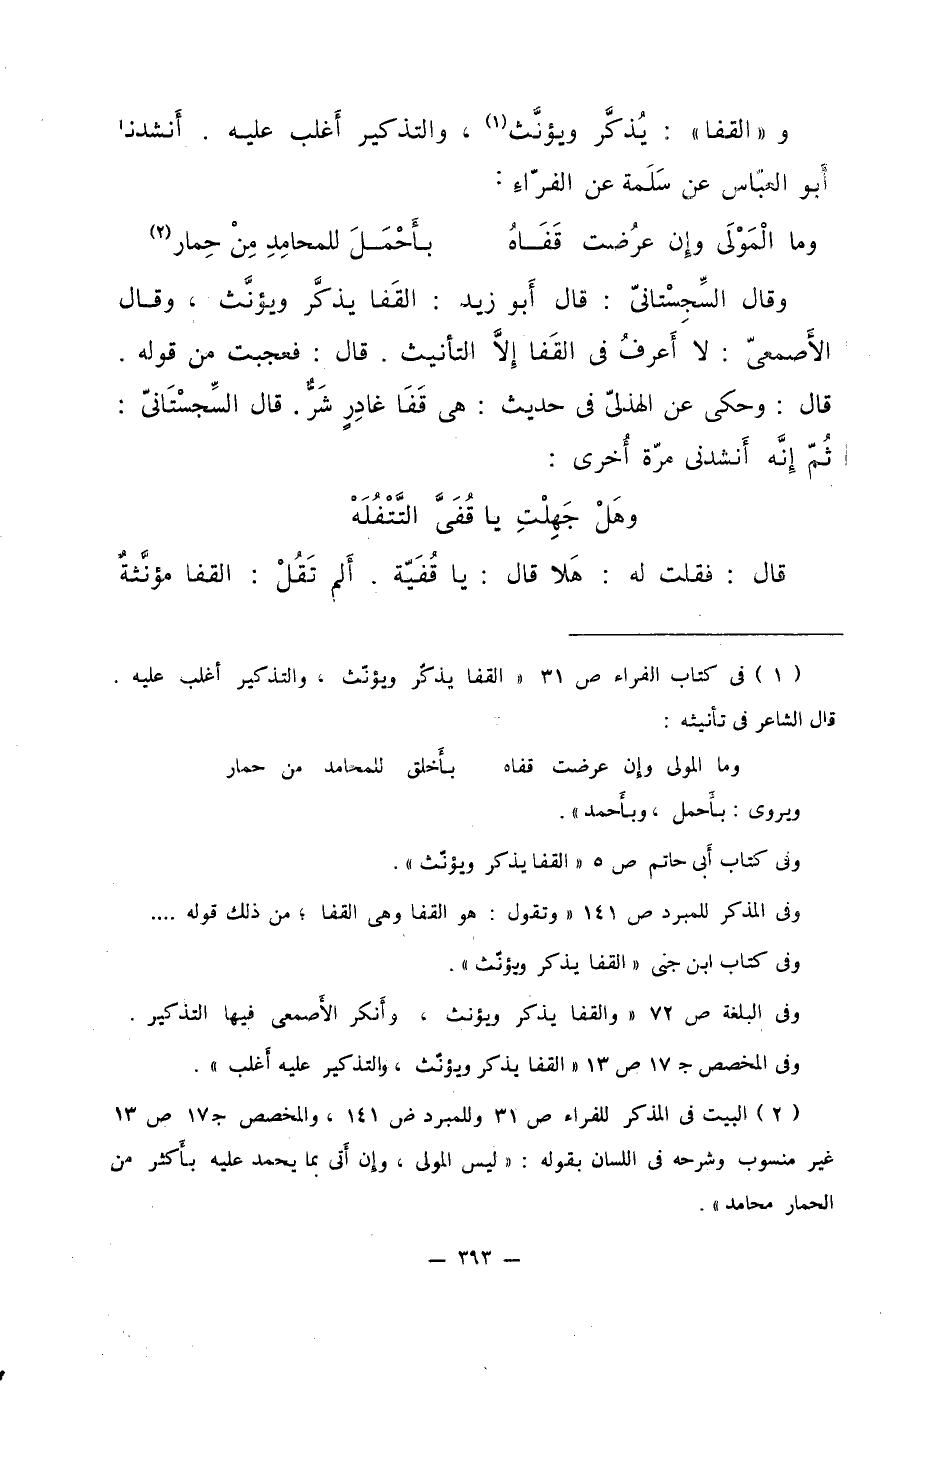 و « القفا » : يُذكَّر ويؤنَّث(١) ، والتذكير أَغلب عليه . أَنشدنا
أَبو العبّاس عن سَلَمة عن الفرّاء :
وما الْمَوْلَى وإن عرُضت قَفَاهُ بأَحْمَلَ للمحامِدِ مِنْ حِمار(٢)
وقال السِّجِسْتانىّ : قال أَبو زيد : القَفا يذكَّر ويؤنَّث ، وقال
الأَصمعىّ : لا أَعرفُ فى القَفا إلاَّ التأنيث . قال : فعجبت من قوله .
قال : وحكى عن الهذلىّ فى حديث : هى قَفَا غادِرٍ شَرٌّ . قال السِّجسْتَانىّ :
ثُمّ إنَّه أَنشدنى مرّة أُخرى :
وهَلْ جَهِلْتِ يا قُفَىَّ التَّتْفُلَهْ
قال : فقلت له : هَلا قال : يا قُفَيّة . أَلم تَقُلْ : القفا مؤنَّثةٌ
( ١ ) فى كتاب الفراء ص ٣١ « القفا يذكّر ويؤنّث ، والتذكير أغلب عليه .
قال الشاعر فى تأنيثه :
وما المولى وإن عرضت قفاه بأَخلق للمحامد من حمار
ويروى : بأَحمل ، وبأَحمد » .
وفى كتاب أَبى حاتم ص ٥ « القفا يذكر ويؤنّث » .
وفى المذكر للمبرد ص ١٤١ « وتقول : هو القفا وهى القفا ؛ من ذلك قوله ....
وفى كتاب ابن جنى « القفا يذكر ويؤنّث » .
وفى البلغة ص ٧٢ « والقفا يذكر ويؤنث ، وأَنكر الأَصمعى فيها التذكير .
وفى المخصص جـ ١٧ ص ١٣ « القفا يذكر ويؤنّث ، والتذكير عليه أَغلب » .
( ٢ ) البيت فى المذكر للفراء ص ٣١ وللمبرد ض ١٤١ ، والمخصص جـ١٧ ص ١٣
غير منسوب وشرحه فى اللسان بقوله : « ليس المولى ، وإن أَتى بما يحمد عليه بأَكثر من
الحمار محامد » .
— ٣٩٣ —